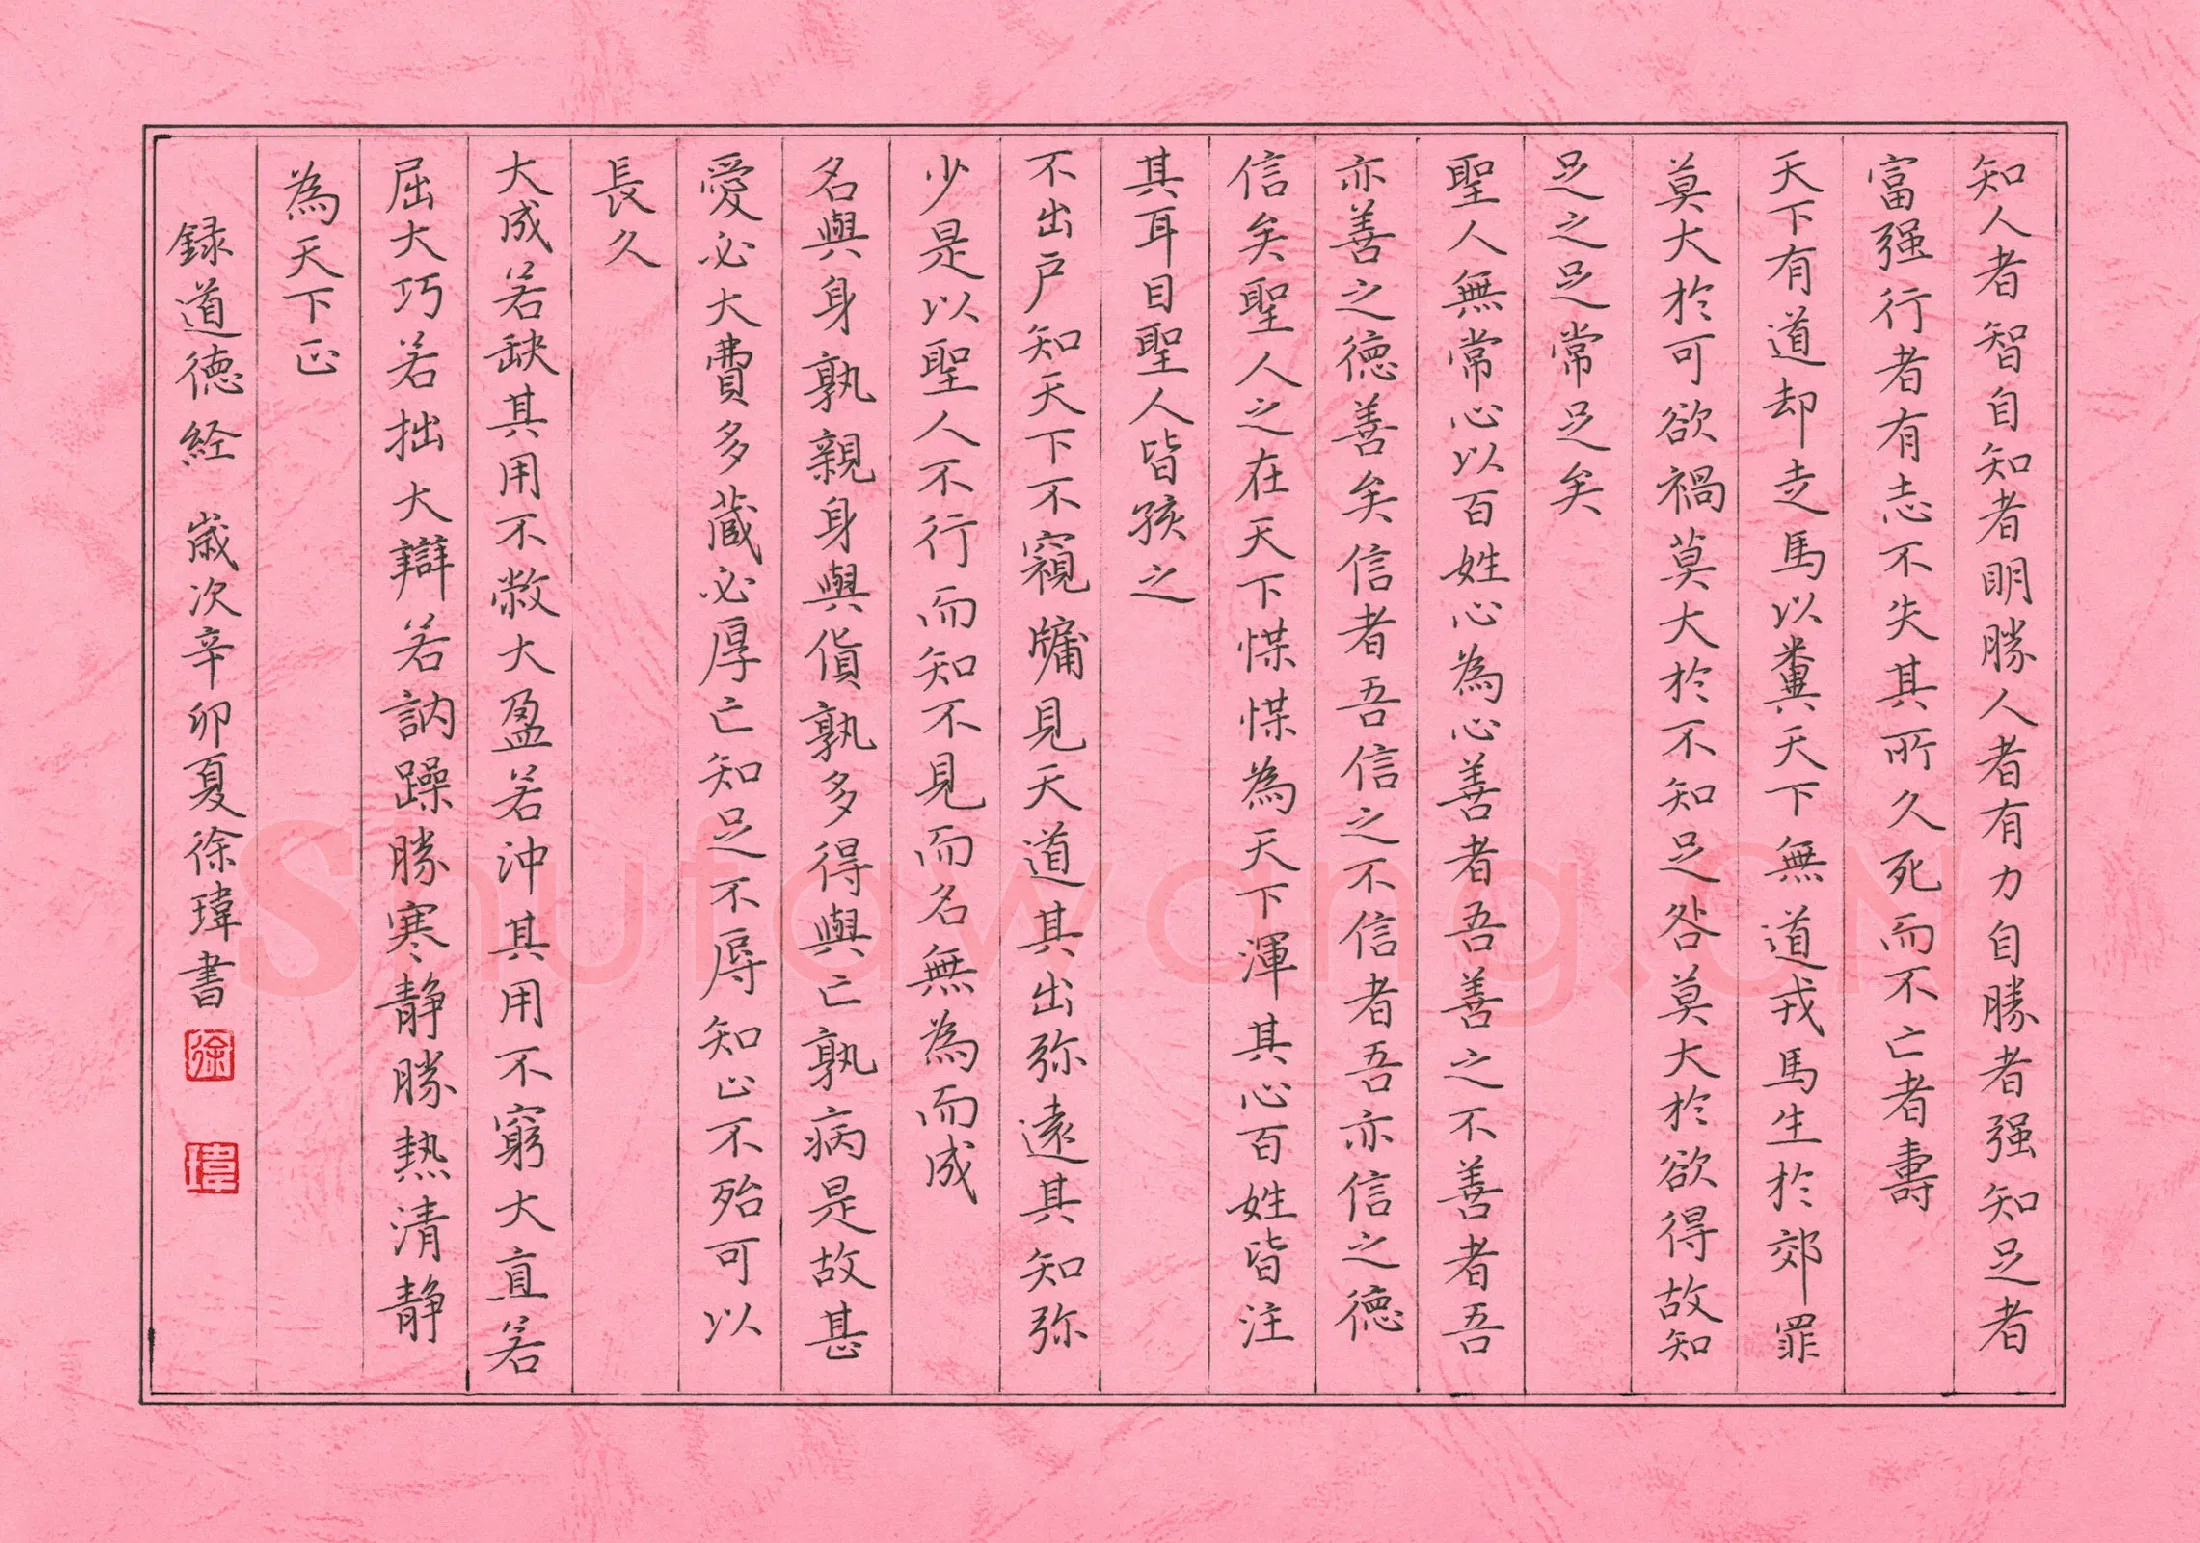 知人者智自知者明勝人者有力自勝者强知足者
富强行者有志不失其所久死而不亡者壽
天下有道却走馬以糞天下無道戎馬生於郊罪
莫大於可欲禍莫大於不知足咎莫大於欲得故知
足之足常足矣
聖人無常心以百姓心為心善者吾善之不善者吾
亦善之德善矣信者吾信之不信者吾亦信之德
信矣聖人之在天下惵惵為天下渾其心百姓皆注
其耳目聖人皆孩之
不出户知天下不窺牖見天道其出弥遠其知弥
少是以聖人不行而知不見而名無為而成
名與身孰親身與貨孰多得與亡孰病是故甚
愛必大費多蔵必厚亡知足不辱知止不殆可以
長久
大成若缺其用不敝大盈若沖其用不窮大直若
屈大巧若拙大辯若訥躁勝寒静勝熱清静
為天下正
録道德経 歲次辛卯夏徐瑋書
徐
瑋
Shufawang.CN